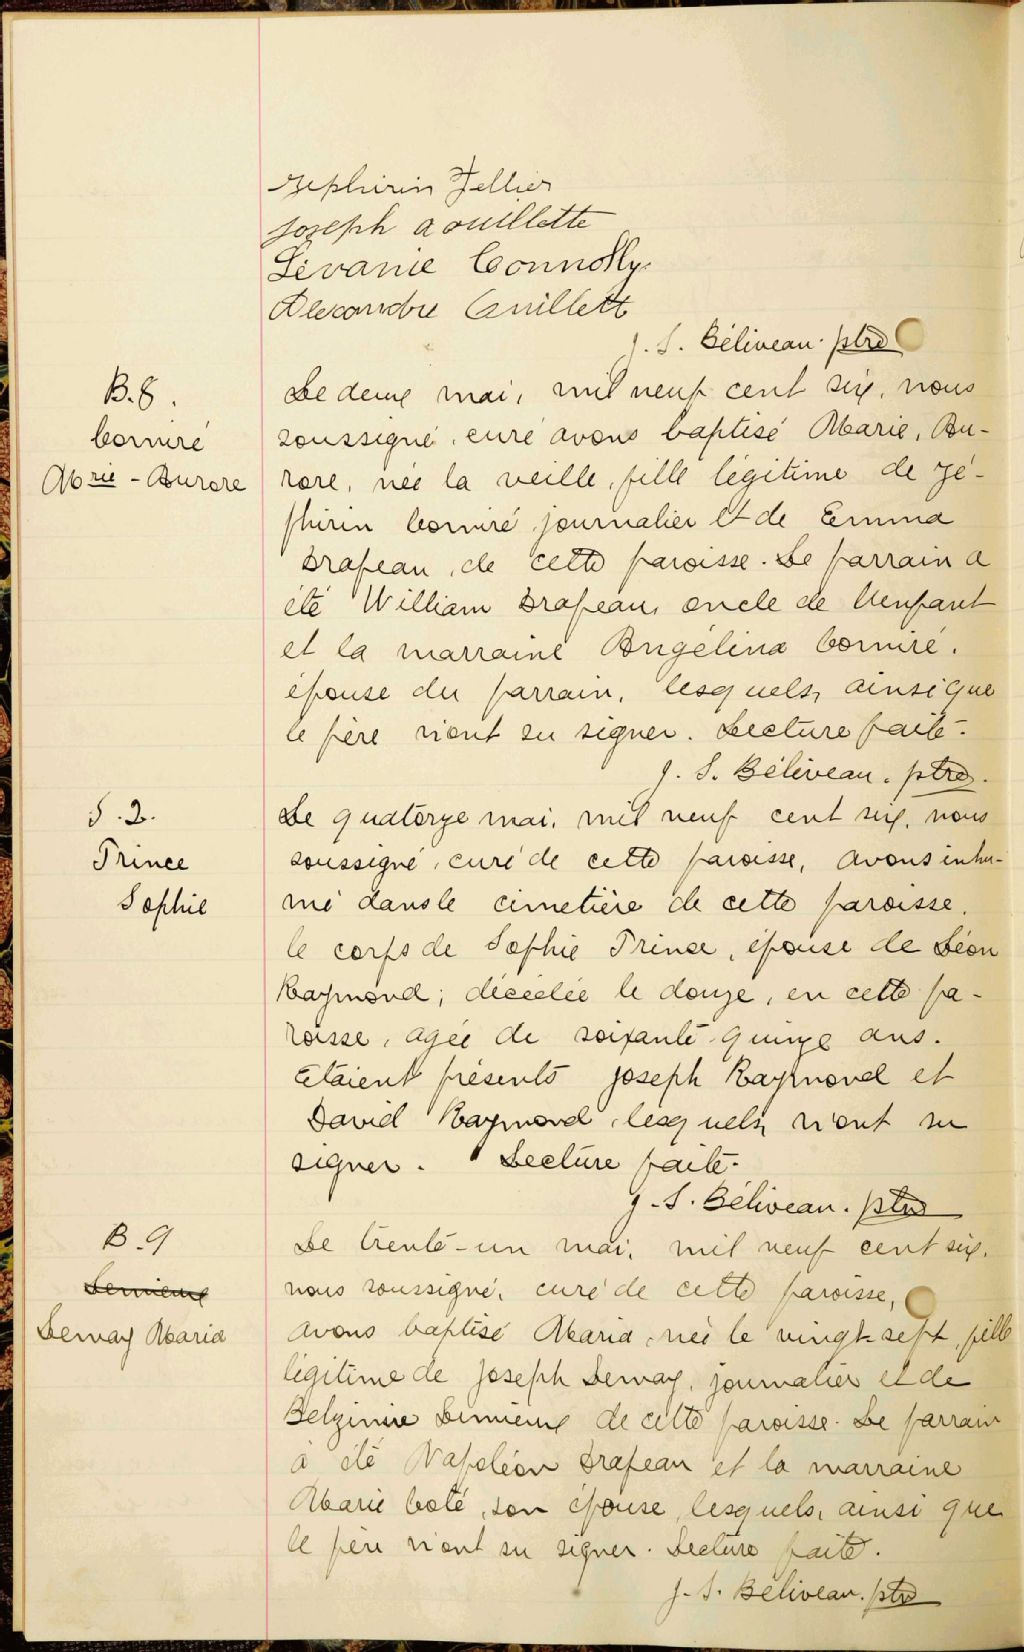 Zephirin Tellier
Joseph a ouillette
Lévanie Connolly
Alexandre Ouillett
J. S. Béliveau. ptre
B. 8.
Cormiré
Mrie - Aurore
Le deux mai, mil neuf cent six, nous
soussigné, curé avons baptisé Marie, Au-
rore, née la veille, fille légitime de Zé-
phirin Cormiré journalier et de Emma
Drapeau, de cette paroisse. Le parrain a
été William Drapeau, oncle de l'enfant
et la marraine Angélina Cormiré,
épouse du parrain, lesquels, ainsi que
le père n'ont su signer. Lecture faite.
J. S. Béliveau. ptre.
S. 2.
Prince
Sophie
Le quatorze mai, mil neuf cent six, nous
soussigné, curé de cette paroisse, avons inhu-
mé dans le cimetière de cette paroisse,
le corps de Sophie Prince, épouse de Léon
Raymond; décédée le douze, en cette pa-
roisse, agée de soixante-quinze ans.
Etaient présents Joseph Raymond et
David Raymond, lesquels, n'ont su
signer. Lecture faite.
J. S. Béliveau. ptre
B. 9
Lemieux
Lemay Maria
Le trente-un mai, mil neuf cent six,
nous soussigné, curé de cette paroisse,
avons baptisé Maria, née le vingt-sept, fille
légitime de Joseph Lemay, journalier et de
Belzimie Lemieux de cette paroisse. Le parrain
a été Napoléon Drapeau et la marraine
Marie Coté, son épouse, lesquels, ainsi que
le père n'ont su signer. Lecture faite.
J. S. Béliveau. ptre